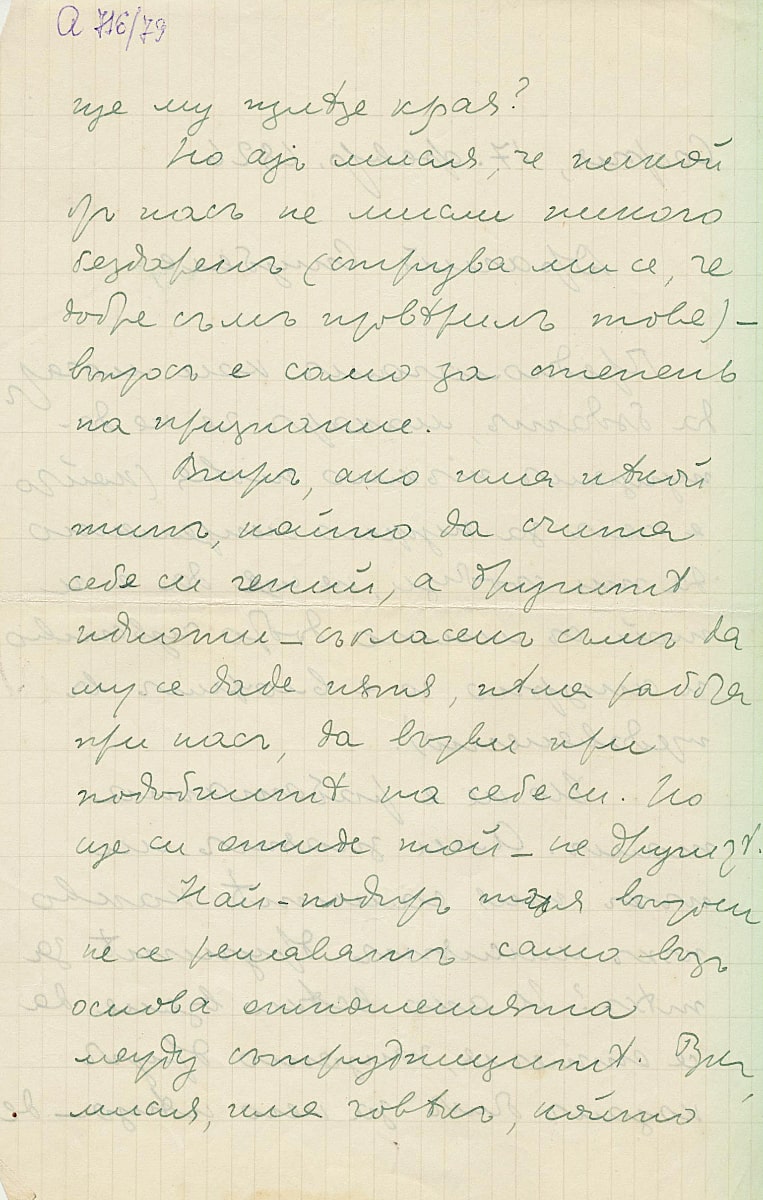 А 716/79
ще му излѣзе края?
Но азъ мисля, че никой
отъ насъ не мисли никого
бездаренъ (струва ми се, че
добре съмъ провѣрилъ това) –
въпросъ е само за степень
на признание.
Вжтръ, ако има нѣкой
типъ, който да счита
себе си гений, а другитѣ
идиоти – съгласенъ съмъ да
му се даде пѫтя, нѣма работа
при насъ, да върви при
подобнитѣ на себе си. Но
ще си отиде той – не другитѣ.
Най-подиръ тия въпроси
не се решаватъ само възъ
основа отношенията
между сътрудницитѣ.
мисля, има човѣкъ, който